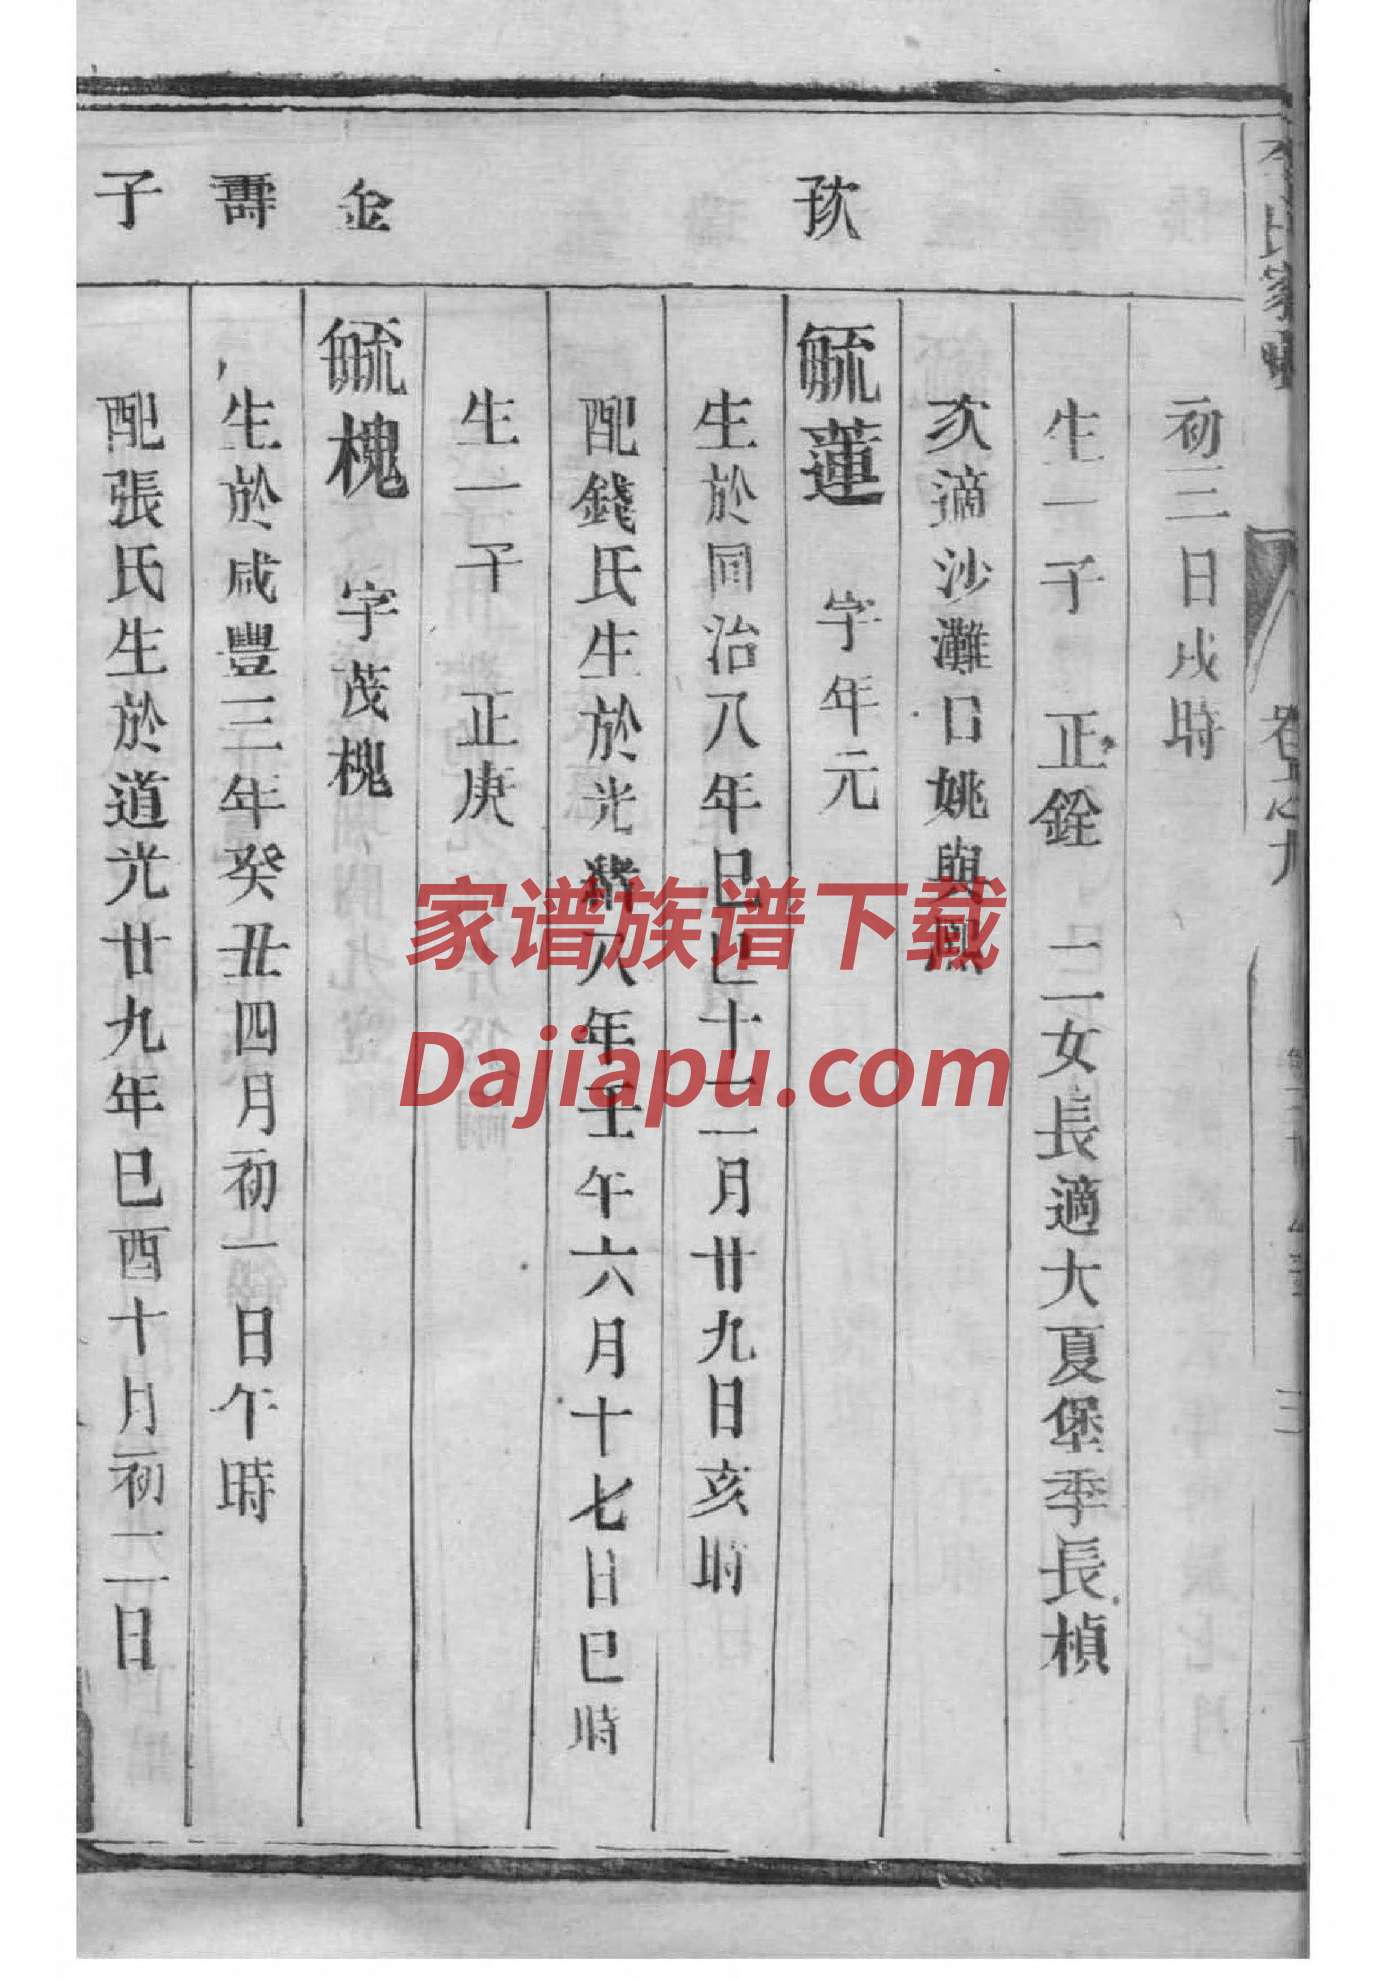 初三日戌時
生一子　正銓　二女長適大夏堡季長楨
次適沙灘口姚與鳳
毓蓮　字年元
生於同治八年巳巳十二月廿九日亥時
配錢氏生於光緒八年壬午六月十七日巳時
生一子　正庚
金
毓槐　字茂槐
壽
生於咸豐三年癸丑四月初一日午時
子
配張氏生於道光廿九年巳酉十月初二日
家谱族谱下载
Dajiapu.com